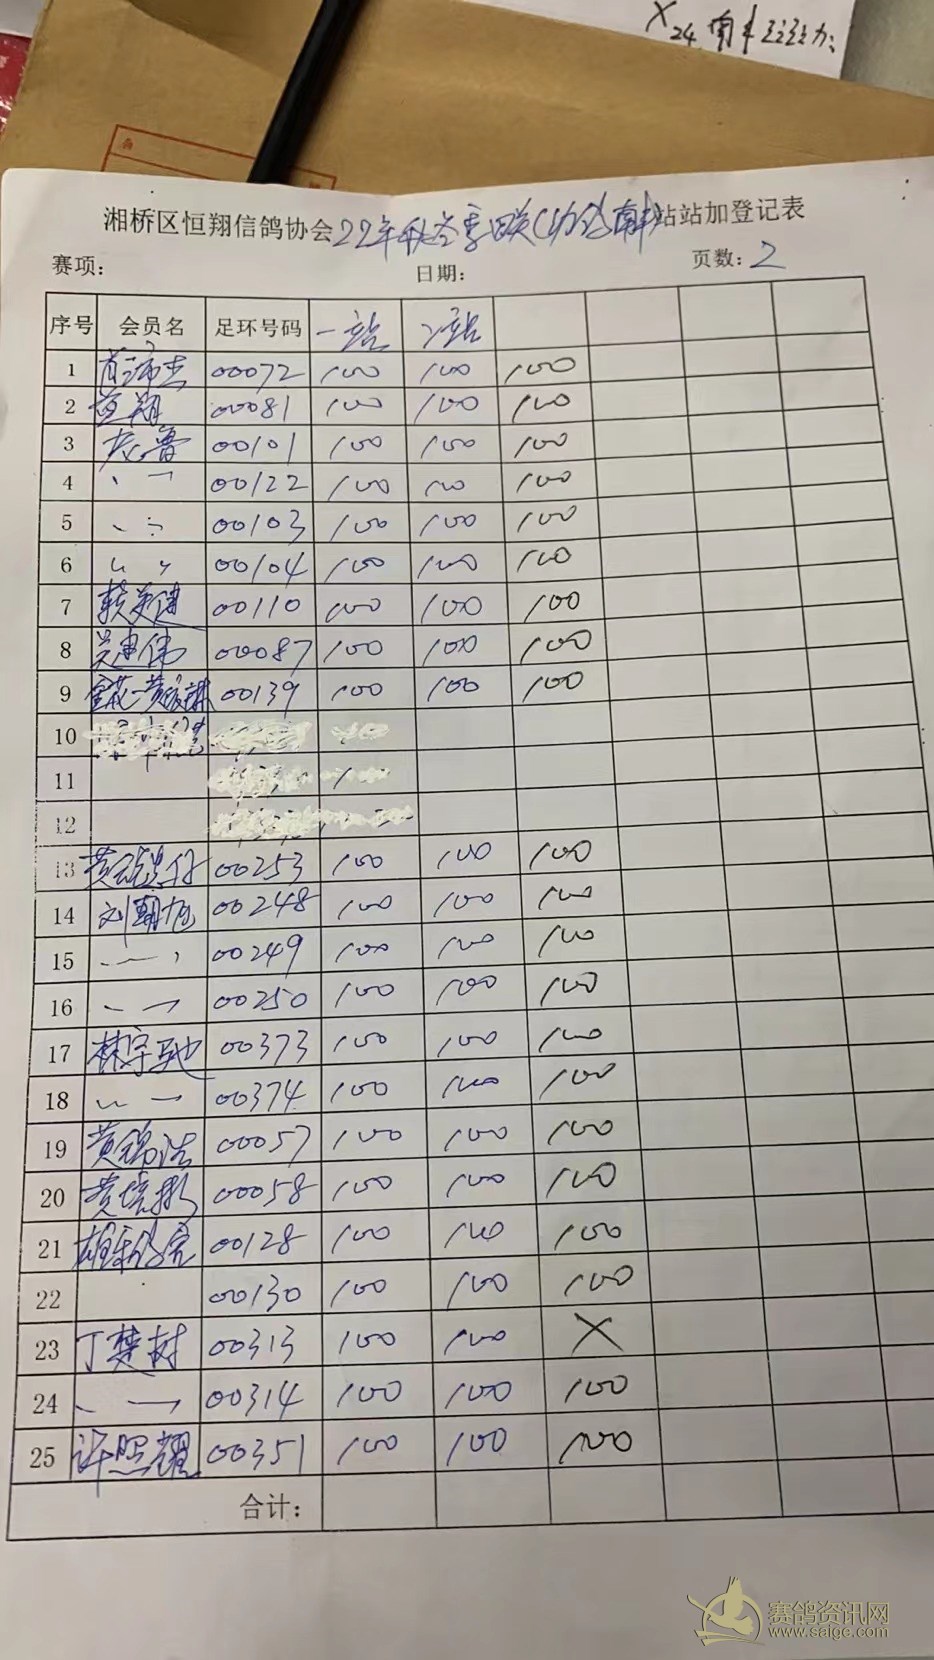 X 24
湘桥区恒翔信鸽协会22年秋冬季 站站加登记表
赛项: 日期: 页数: 2
序号 会员名 足环号码 一站 2站
1 00072 100 100 100
2 恒翔 00081 100 100 100
3 00101 100 100 100
4 00122 100 100 100
5 00103 100 100 100
6 00104 100 100 100
7 00110 100 100 100
8 吴建伟 00087 100 100 100
9 00139 100 100 100
10
11
12
13 00253 100 100 100
14 刘朝旭 00248 100 100 100
15 00249 100 100 100
16 00250 100 100 100
17 林宇驰 00373 100 100 100
18 00374 100 100 100
19 黄锦浩 00057 100 100 100
20 00058 100 100 100
21 00128 100 100 100
22 00130 100 100 100
23 丁楚树 00313 100 100 X
24 00314 100 100 100
25 许照耀 00351 100 100 100
合计:
赛鸽资讯网
www.saige.com